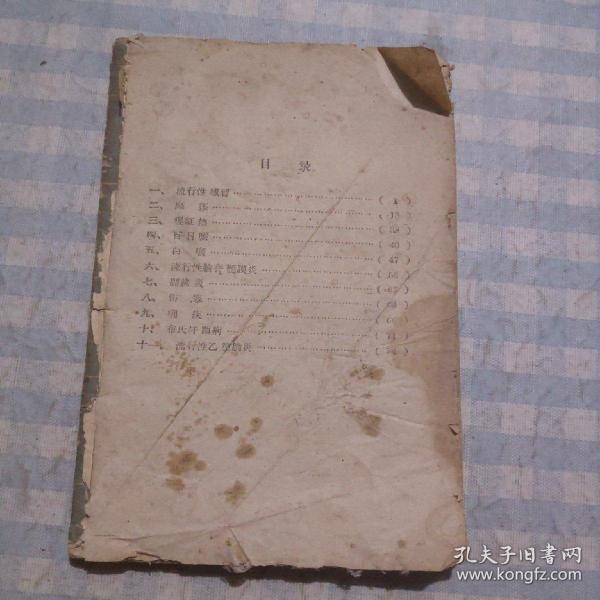 目 录
一、 流行性感冒 ( 1 )
二、 麻 疹 ( 13 )
三、 猩红热
四、 百日咳 ( 40 )
五、 白 喉 ( 47 )
六、 流行性脑脊髓膜炎 ( 56 )
七、
八、 伤 寒
九、 痢 疾
十、 布氏杆菌病
十一、 流行性乙型脑炎
孔夫子旧书网
www.kongfz.com